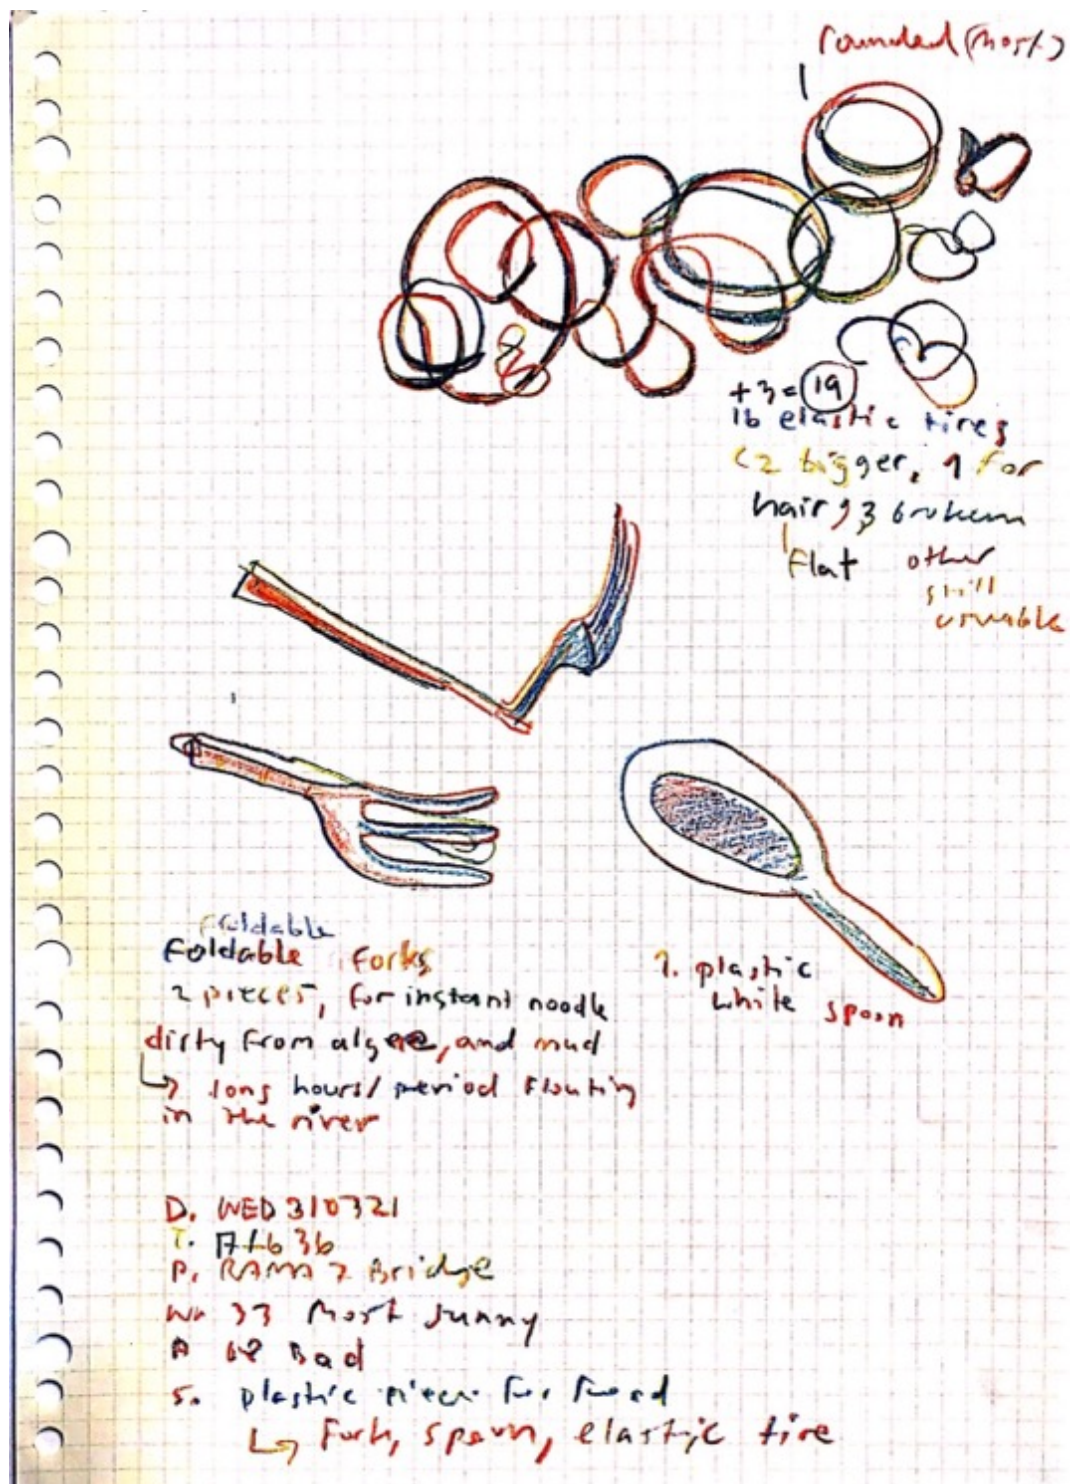 rounded (most)
+3=19
16 elastic tires
(2 bigger, 1 for
hair, 3 broken
flat other
still
usuable
foldable
Foldable Forks
2 pieces, for instant noodle
dirty from algee, and mud
↳ long hours/period floating
in the river
1. plastic
white spoon
D. WED 310321
T.
P. RAMA 7 Bridge
33 Most sunny
A Bad
S. plastic piece for food
↳ fork, spoon, elastic tire